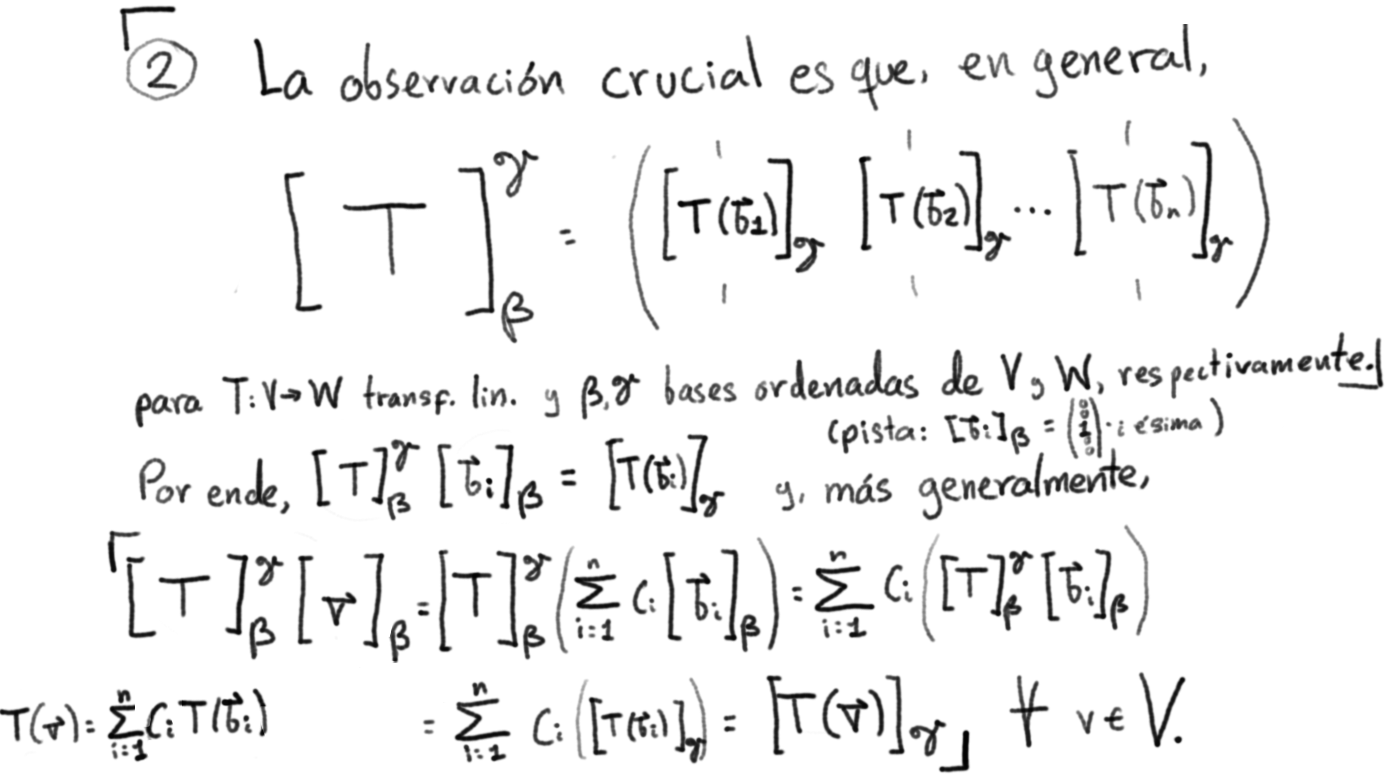 ② La observación crucial es que, en general,
[T]_β^γ = ([T(b⃗1)]_γ [T(b⃗2)]_γ ... [T(b⃗n)]_γ)
para T:V→W transf. lin. y β,γ bases ordenadas de V y W, respectivamente.
(pista: [b⃗i]_β = (0 0 1 0 0) · i ésima)
Por ende, [T]_β^γ [b⃗i]_β = [T(b⃗i)]_γ y, más generalmente,
[T]_β^γ [v⃗]_β = [T]_β^γ (∑_{i=1}^n Ci [b⃗i]_β) = ∑_{i=1}^n Ci ([T]_β^γ [b⃗i]_β)
T(v⃗) = ∑_{i=1}^n Ci T(b⃗i) = ∑_{i=1}^n Ci ([T(b⃗i)]_γ) = [T(v⃗)]_γ ∀ v ∈ V.